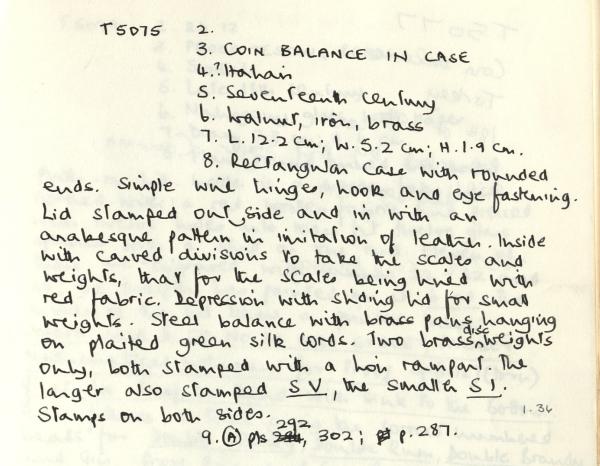 T5075 2.
3. COIN BALANCE IN CASE
4. ? Italian
5. Seventeenth century
6. Walnut, iron, brass
7. L. 12.2 cm; W. 5.2 cm; H. 1.9 cm.
8. Rectangular case with rounded
ends. Simple wire hinges, hook and eye fastening.
Lid stamped out side and in with an
arabesque pattern in imitation of leather. Inside
with carved divisions to take the scales and
weights, that for the scales being lined with
red fabric. Depression with sliding lid for small
weights. Steel balance with brass pans hanging
on plaited green silk cords. Two brass disc weights
only, both stamped with a lion rampant. The
larger also stamped S V, the smaller S I.
Stamps on both sides.
1.34
9. (A) pls 292, 302; p. 287.